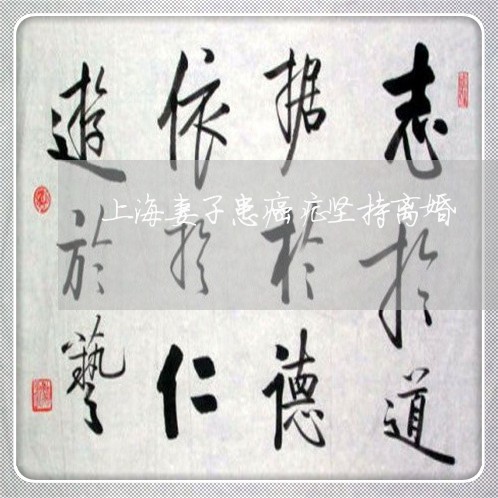 志於道
据於德
依於仁
遊於藝
上海妻子患癌症坚持离婚